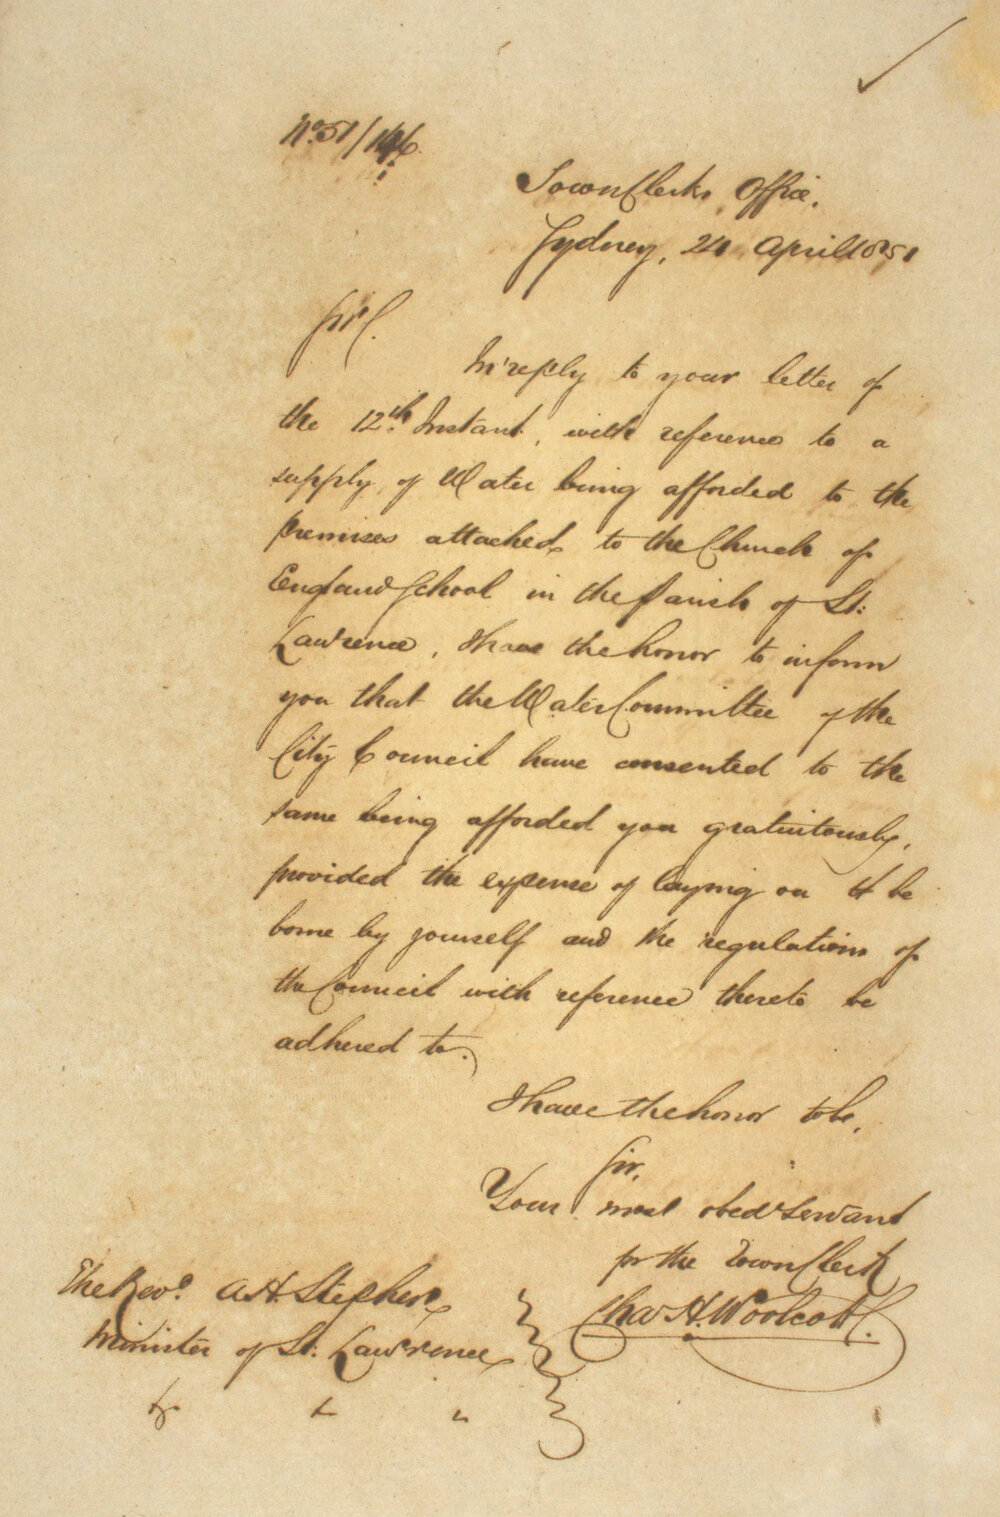 No 51/146.
Town Clerks Office.
Sydney, 24 April 1851
Sir,
In reply to your letter of
the 12th Instant, with reference to a
supply of Water being afforded to the
premises attached to the Church of
England School in the Parish of St:
Lawrence, I have the honor to inform
you that the Water Committee of the
City Council have consented to the
same being afforded you gratuitously,
provided the expense of laying on it be
borne by yourself and the regulations of
the Council with reference thereto be
adhered to.
I have the honor to be,
Sir,
Your most obedt Servant
for the Town Clerk
Chas H. Woolcott.
The Revd. A. H. Stephen
Minister of St: Lawrence